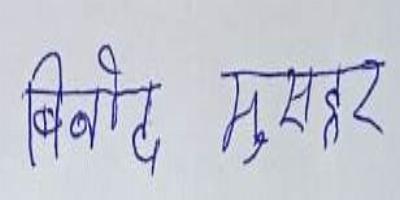 बिनोद मुसहर